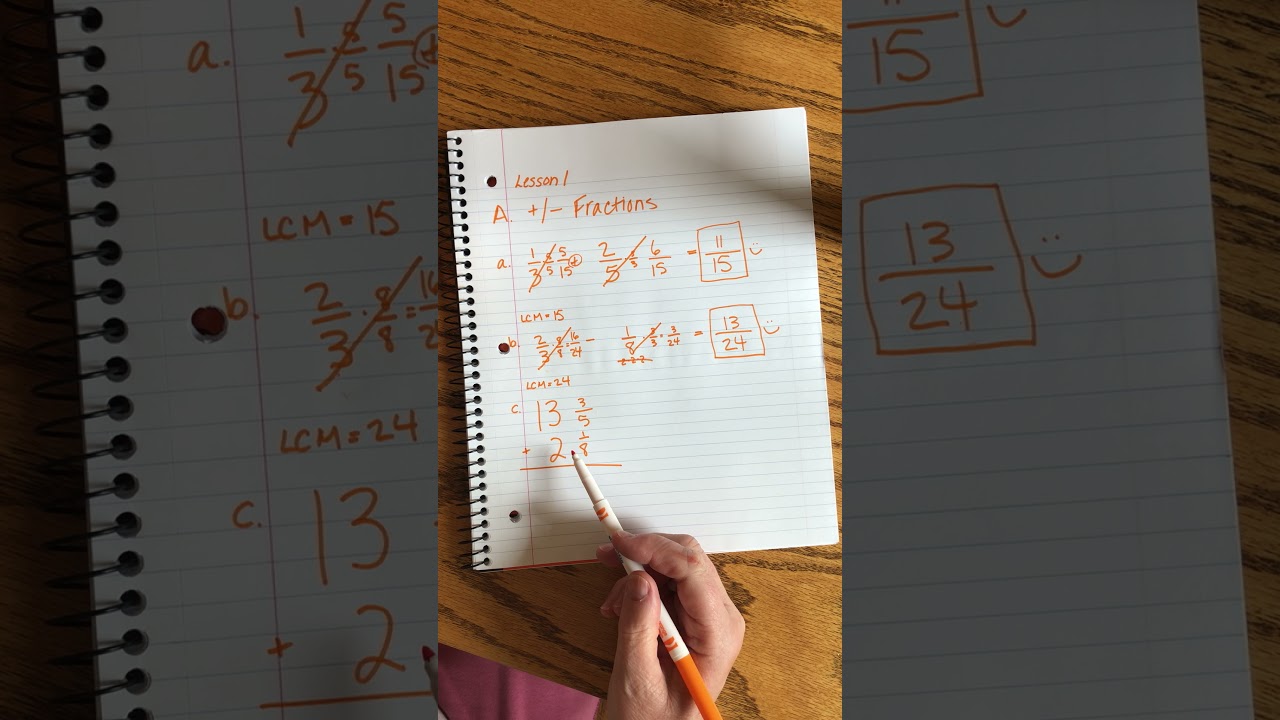 Lesson 1
A. +/- Fractions
a. 1/3 · 5/5 5/15 + 2/5 · 3/3 6/15 = 11/15
LCM = 15
b. 2/3 · 8/8 · 16/24 - 1/8 · 3/3 · 3/24 = 13/24
LCM = 24
c. 13 3/5
+ 2 1/8